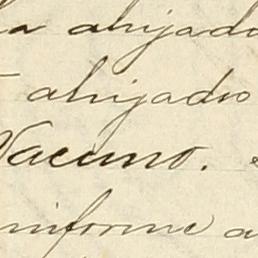 la ahijado
ahijado
Vacuno.
informe a